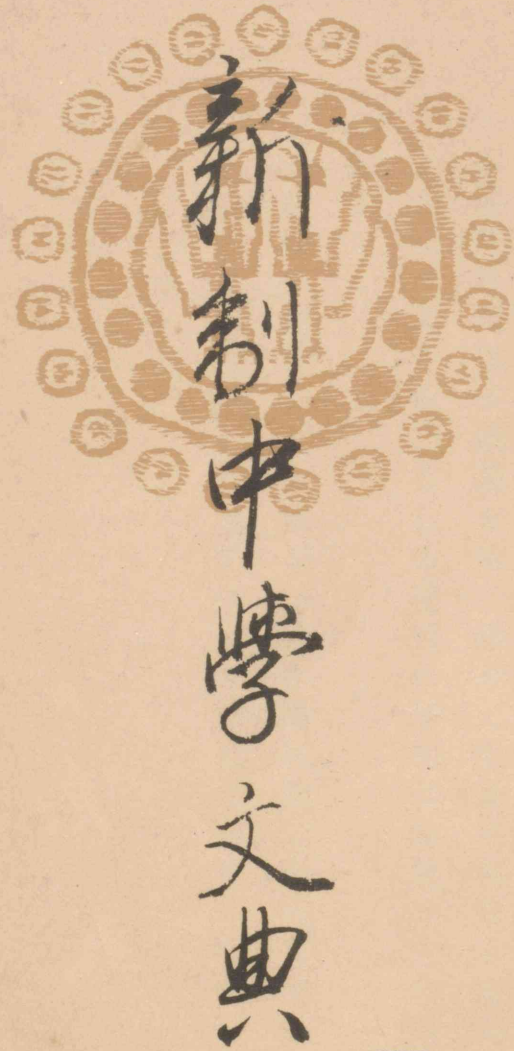 新制中學文典